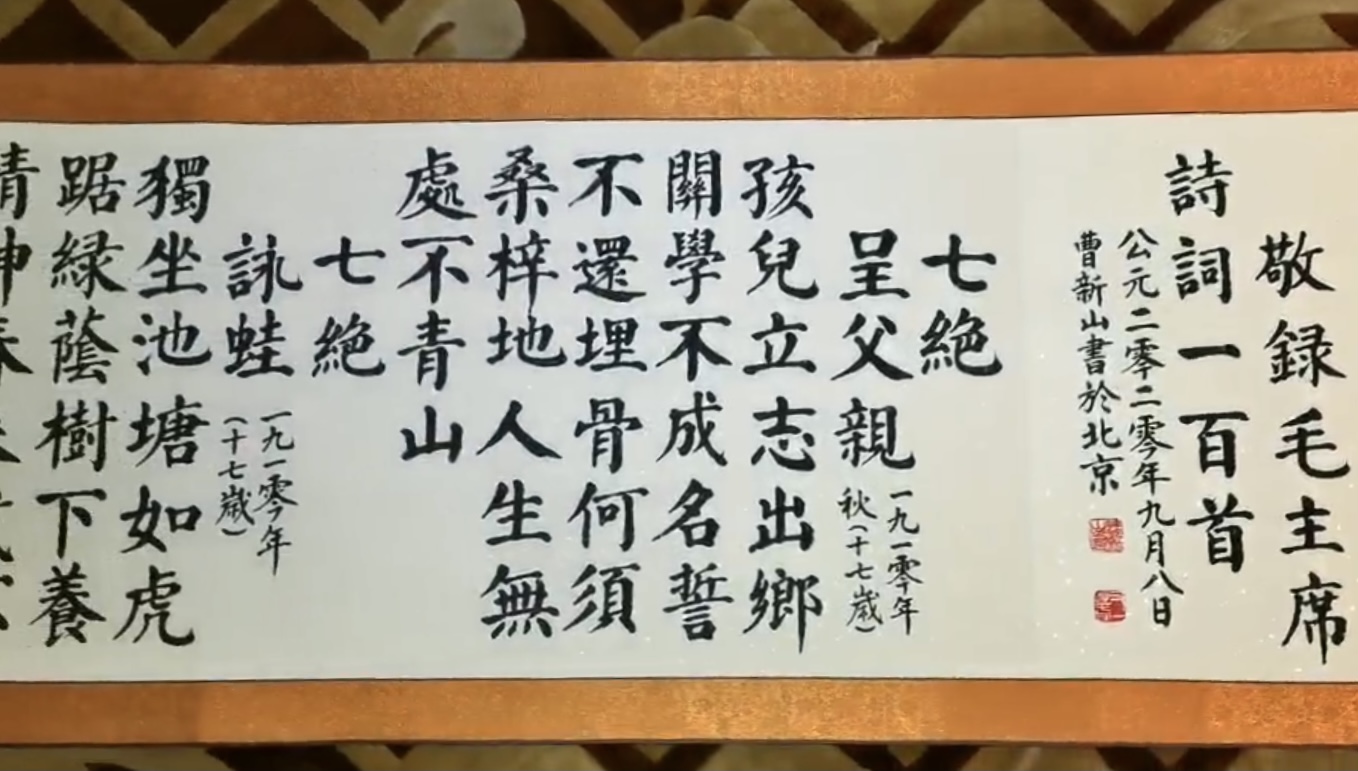 敬録毛主席
詩詞一百首
公元二零二零年九月八日
曹新山書於北京
七絶
呈父親
一九一零年
秋(十七歲)
孩兒立志出鄉
關學不成名誓
不還埋骨何須
桑梓地人生無
處不青山
七絶
詠蛙
一九一零年
(十七歲)
獨坐池塘如虎
踞緑蔭樹下養